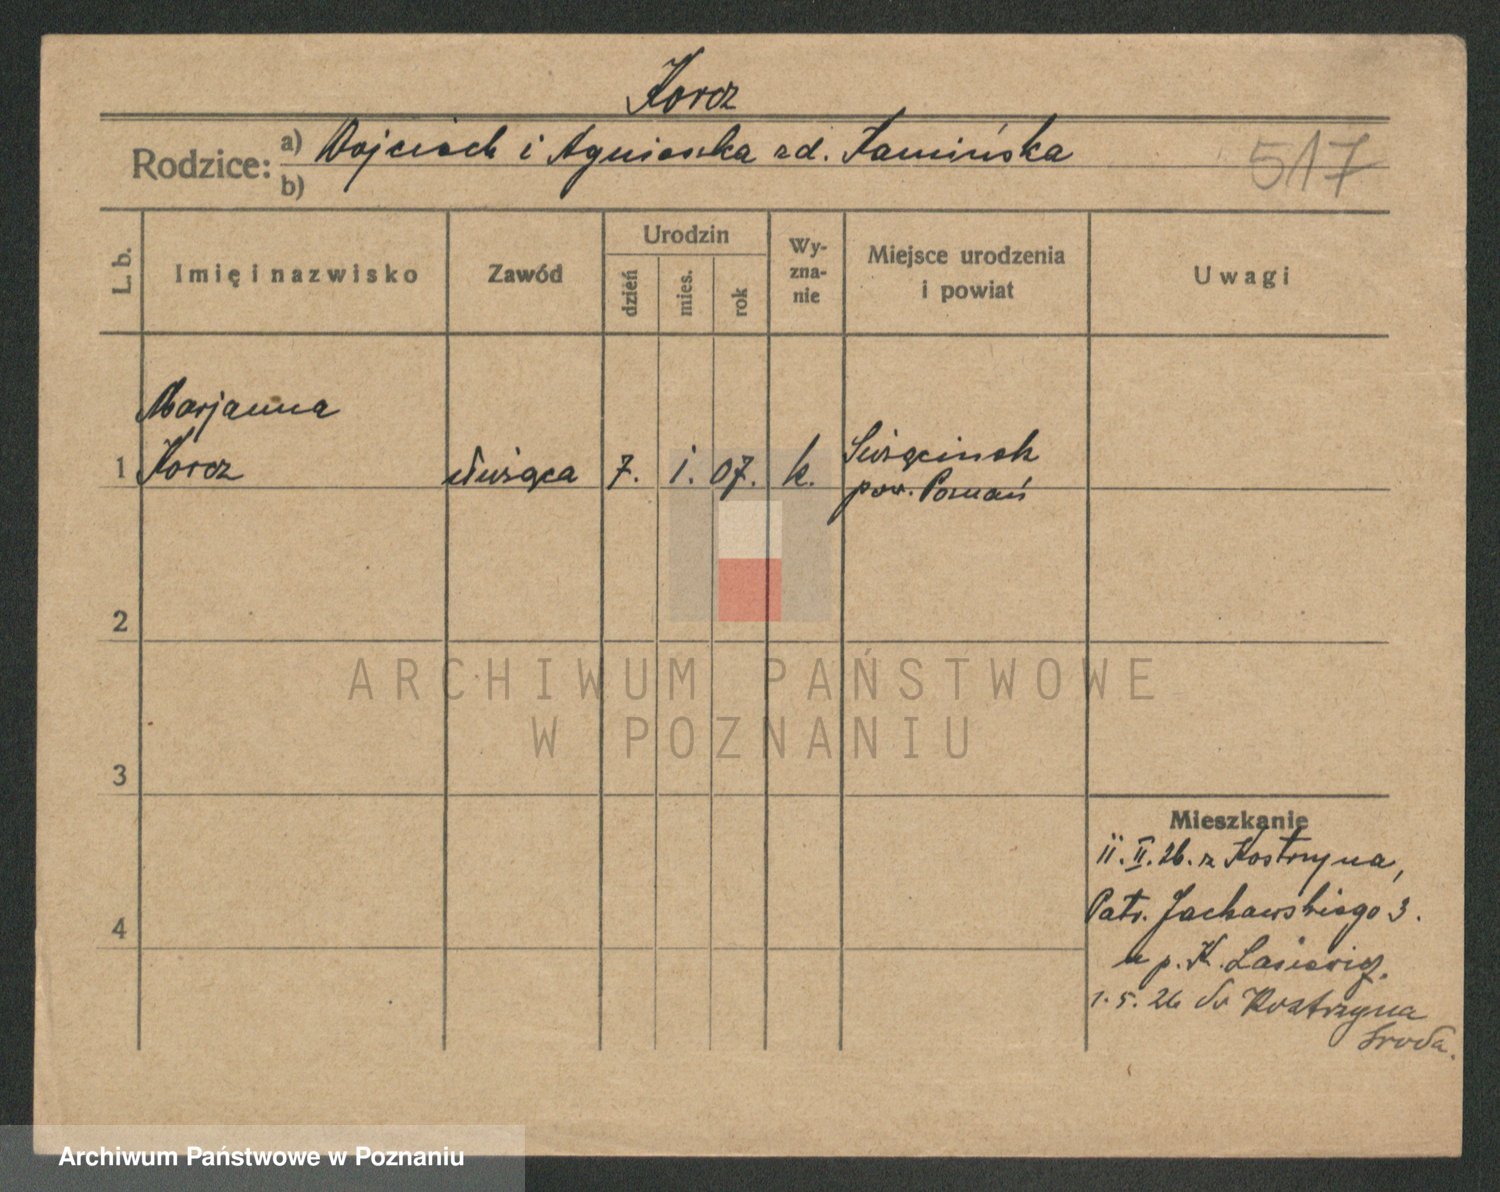 Korcz
Rodzice: a) Wojciech i Agnieszka zd. Kamińska
b)
517
L. b.
Imię i nazwisko
Zawód
Urodzin
dzień
mies.
rok
Wy-
zna-
nie
Miejsce urodzenia
i powiat
Uwagi
Marjanna
1 Korcz
służąca
7. i. 07.
k.
Święcinek
pow. Poznań
2
ARCHIWUM PAŃSTWOWE
W POZNANIU
3
Mieszkanie
ii. II. 26. z Kostrzyna,
Patr. Jackowskiego 3.
u p. K.
1. 5. 26 do Kostrzyna
Środa.
4
Archiwum Państwowe w Poznaniu